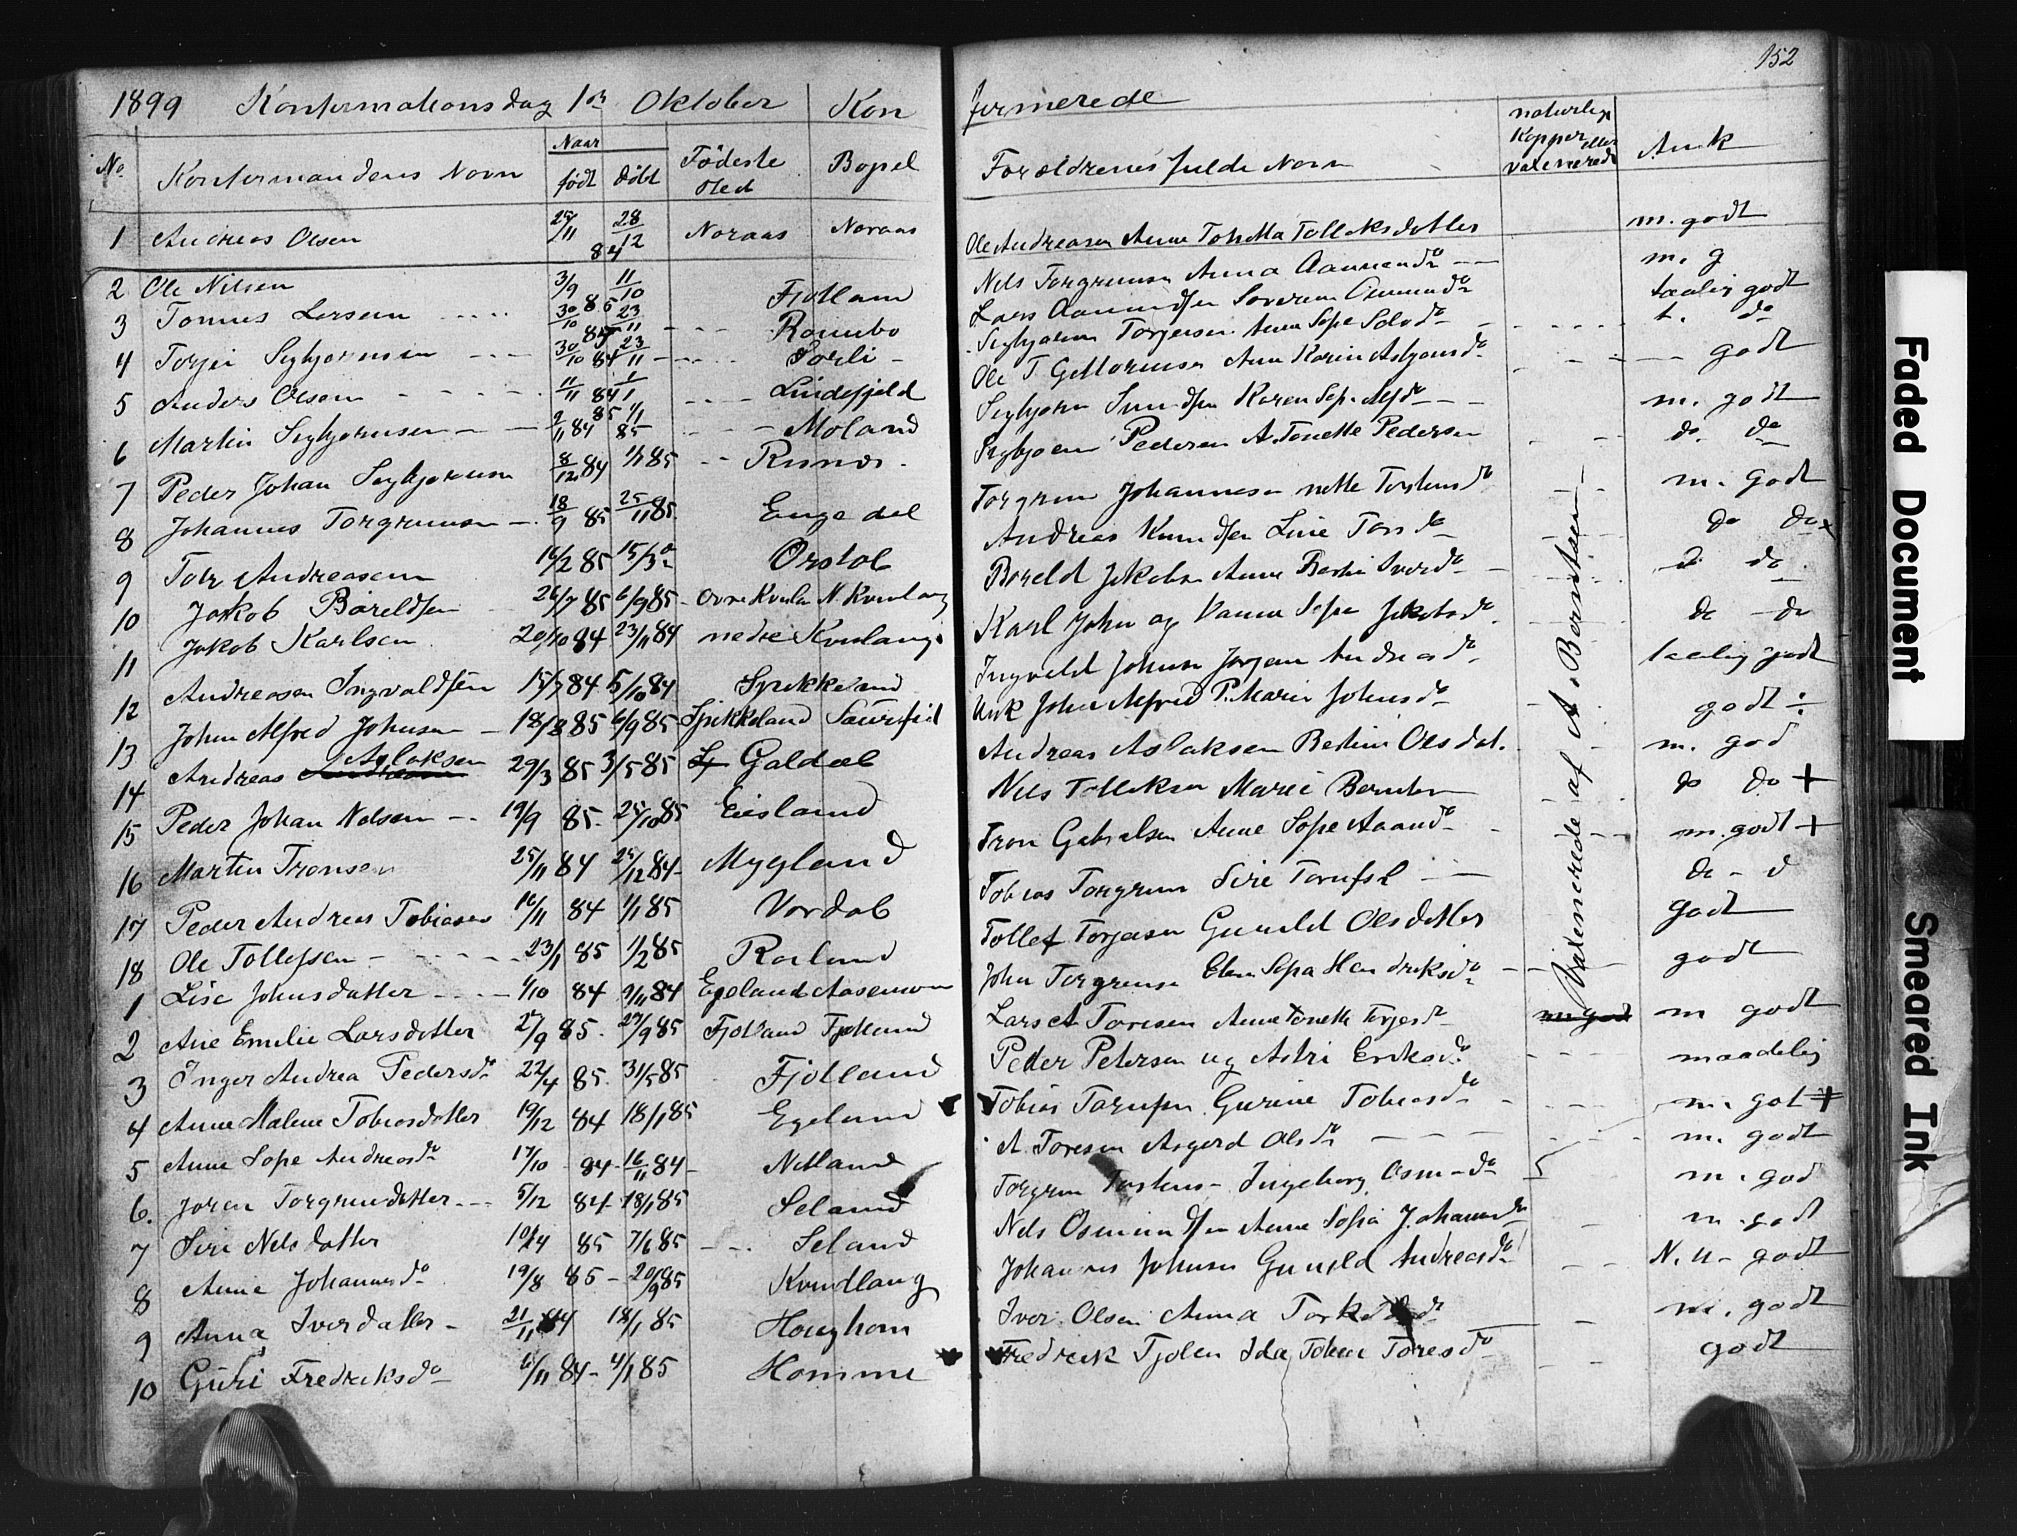 152
1899 Konfirmationsdag 1ste Oktober Kon firmerede
No. Konfirmandens Navn Naar født døbt Fødeste sted Bopel Forældrenes fulde Navn naturlige Kopper eller vaxinerede Ank
1 Andreas Olsen 25/11 28/12 84 Noraas Noraas Ole Andreasen Anne Tollaksdatter m. godt
2 Ole Nilsen 3/9 85 11/10 Fjotland Nels Torgrimsen Anna m. g
3 Tonnes Larsen 30/10 23/11 Rambo Lars taalig godt
4 Torjei Segbjornsen 30/10 84 23/11 Sorli Segbjorn Torgersen Anne Sofe t. do
5 Anders Olsen 11/11 84 1/1 85 Lindefjeld Ole T Anne Karin godt
6 Martin Segbjornsen 2/11 84 1/1 85 Moland Segbjorn Karen m. godt
7 Peder Johan Segbjornsen 8/12 84 1/1 85 Risnes Segbjorn Pedersen Antonette Pedersen do do
8 Johannes Torgrimsen 18/9 85 25/11 85 Engedal Torgrim Johannesen m. godt
9 Tore Andreasen 16/2 85 15/3 Orstol Andreas Knudsen Line Torsdo do do
10 Jakob Böreldsen 26/7 85 6/9 85 ovre Kvinlau N. Kvinlaug Boreld Jakobsen Anne Bertine do
11 Jakob Karlsen 20/10 84 23/11 84 nedre Kvinlaug Karl John og Hanne Sofe Jakobsdo do - do
12 Andreasen Ingvaldsen 15/7 84 5/10 84 Spikkeland Ingvald Johnsen Jorgine Andreasdo taalig godt
13 John Alfred Johnsen 18/8 85 6/9 85 Spikkeland John Alfred P. Marie Johnsdo godt ÷
14 Andreas Aslaksen 29/3 85 3/5 85 Galdal Andreas Aslaksen Bertine Olsdat. m. god
15 Peder Johan Nelsen 19/9 85 25/10 85 Eiesland Nels Tolleksen Marie do do +
16 Martin Tronsen 25/11 84 25/12 84 Mygland Tron Gabrielsen Anne Sope m. godt +
17 Peder Andreas Tobiasen 16/11 84 1/1 85 Vordal Tobias Torgrim Sire do - d
18 Ole Tollefsen 23/1 85 1/2 85 Rorland Tollef Torjesen Gunild Olsdatter godt
1 Lise Johnsdatter 6/10 84 9/11 84 Egeland Aasenmoen John Torgrimsen Elen Sopa Hendriksdo godt
2 Ane Emilie Larsdatter 27/9 85 27/9 85 Fjotland Fjotland Lars A Toresen Anne Tonette Terjesdo m godt
3 Inger Andrea Pedersdo 22/4 85 31/5 85 Fjotland Peder Petersen og Astri Eriksdo maadelig
4 Anne Malene Tobiasdatter 19/12 84 18/1 85 Egeland Tobias Gurine Tobiasdo m. got +
5 Anne Sope Andreasdo 17/10 84 16/11 84 Netland A. Toresen Asgerd Olsdo m. godt
6. Joren Torgrimdatter 5/12 84 18/1 85 Seland Torgrim Ingeborg m. god
7 Siri Nelsdatter 10/4 85 7/6 85 Seland Nels Osmundsen Anne Sofia Johannesdo m. godt
8 Anne Johannesdo 19/8 85 20/9 85 Kvindlaug Johannes Johnsen Gunild Andreasdo godt
9 Anna Iverdatter 21/11 84 18/1 85 Houghom Iver Olsen Anna m. godt
10 Guri Fredriksdo 6/11 84 4/1 85 Homme Fredrik Tjolen Ida Toresdo godt
Vaxinerede af A. Berntsen
Faded Document
Smeared Ink